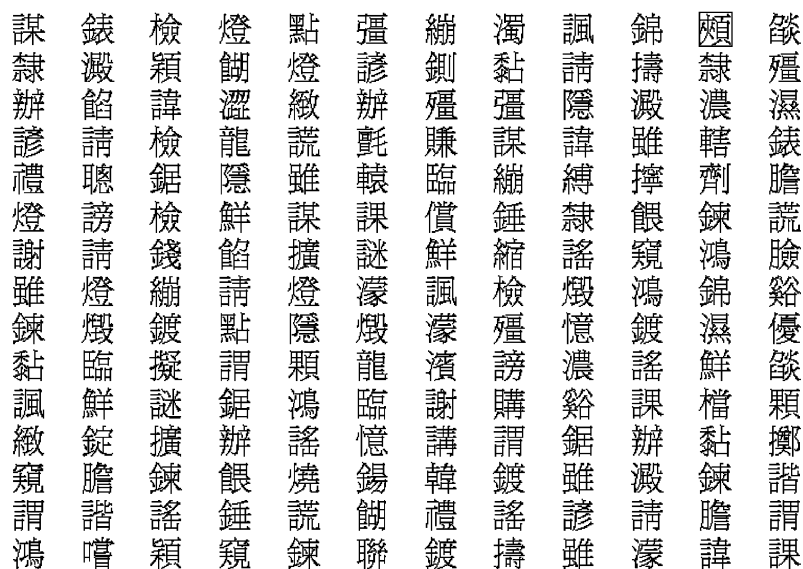 謀 錶 檢 燈 點 彊 繃 濁 諷 錦 頰 燄
隸 澱 穎 餬 燈 諺 鍘 黏 請 擣 隸 殭
辦 餡 諱 澀 緻 辦 殭 彊 隱 澱 濃 濕
諺 請 檢 龍 謊 氈 賺 謀 諱 雖 轄 錶
禮 聰 鋸 隱 雖 轅 臨 繃 縛 擰 劑 膽
燈 謗 檢 鮮 謀 課 償 錘 隸 餵 鍊 謊
謝 請 錢 餡 擴 謎 鮮 縮 謠 窺 鴻 臉
雖 燈 繃 請 燈 濛 諷 檢 燬 鴻 錦 谿
鍊 燬 鍍 點 隱 燬 濛 殭 憶 鍍 濕 優
黏 臨 擬 謂 顆 龍 濱 謗 濃 謠 鮮 燄
諷 鮮 謎 鋸 鴻 臨 謝 購 谿 課 檔 顆
緻 錠 擴 辦 謠 憶 講 謂 鋸 辦 黏 擲
窺 膽 鍊 餵 燒 鍚 韓 鍍 雖 澱 鍊 諧
謂 諧 謠 錘 謊 餬 禮 謠 諺 請 膽 謂
鴻 嚐 穎 窺 鍊 聯 鍍 擣 雖 濛 諱 課